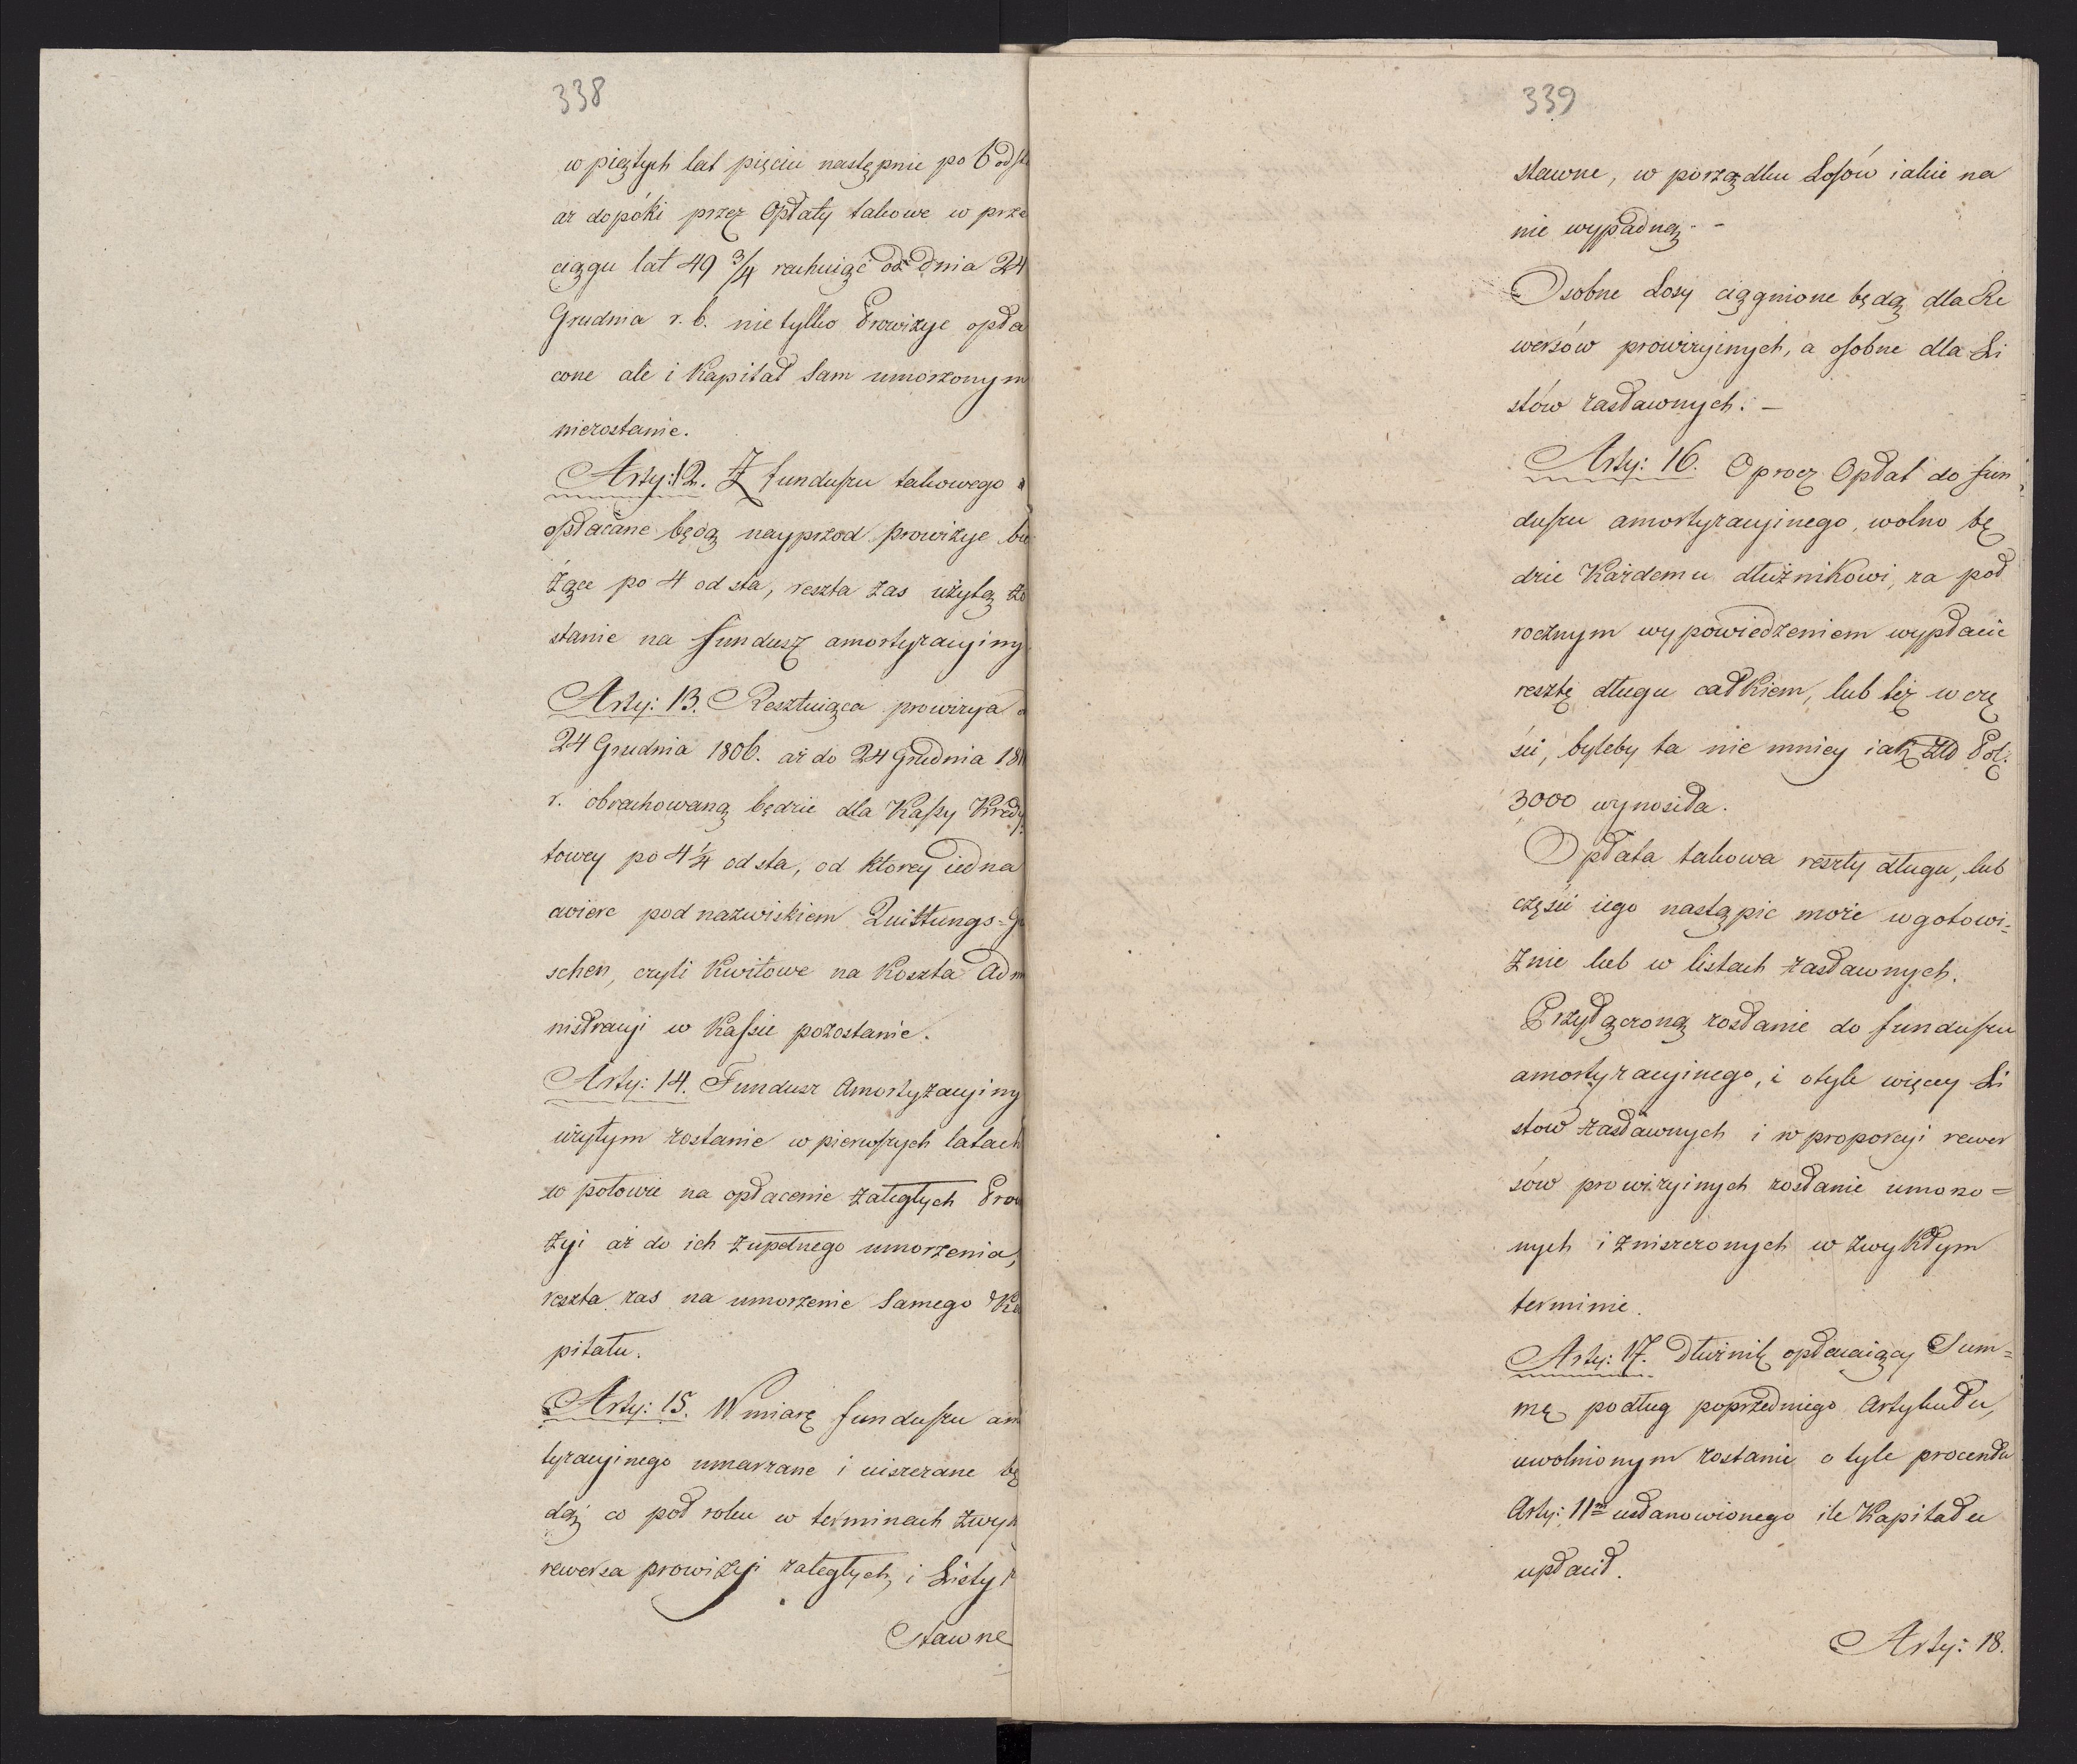 338
w piątych lat pięciu następnie po 6 od sta
aż dopóki przez Opłaty takowe w prze
ciągu lat 49 3/4 rachuiąc od dnia 24
Grudnia r. b. nietylko Prowizye opła
cone ale i Kapitał Sam umorzonym
niezostanie.
Arty: 12. Z funduszu takowego
opłacane będą nayprzod prowizye bie
żące po 4 od sta, reszta zas użytą zo
stanie na fundusz amortyzacyiny
Arty: 13. Resztuiąca prowizya
24 Grudnia 1806. aż do 24 Grudnia 181
r. obrachowaną będzie dla Kassy Kredy
towey po 4 1/4 od sta, od ktorey iedna
cwierc pod nazwiskiem Quittungs=Gr
schen, czyli Kwitowe na Koszta Adm
nistracyi w Kassie pozostanie.
Arty: 14. Fundusz Amortyzacyiny
użytym zostanie w pierwszych latach
w połowie na opłacenie zaległych Prow
zyi aż do ich zupełnego umorzenia,
reszta zas na umorzenie Samego Ka
pitału.
Arty: 15. W miarę funduszu am
tyzacyinego umarzane i niszczane bę
dą co pod roku w terminach zwyk
rewersa prowizyi zaległych, i Listy
stawne
339
stawne, w porządku Losów iakie na
nie wypadną. -
Osobne Losy ciągnione będą dla Re
wersów prowizyinych, a osobne dla Li
stów zastawnych. -
Arty: 16. Oprocz Opłat do fun
duszu amortyzacyinego, wolno bę
dzie Każdemu dłużnikowi, za pod
rocznym wypowiedzeniem wypłacic
resztę długu całkiem, lub też w czę
ści, byleby ta nie mniey iak Złº Pol:
3000 wynosiła.
Opłata takowa reszty długu, lub
części iego nastąpic może w gotowi=
znie lub w listach zastawnych.
Przyłączoną zostanie do funduszu
amortyzacyinego, i otyle więcey Li
stow zastawnych i w proporcyi rewer
sów prowizyinych zostanie umorzo=
nych i zniszczonych w zwykłym
terminie.
Arty: 17. Dłużnik opłacaiący Sum=
mę podług poprzedniego Artykułu,
uwolnionym zostanie o tyle procentu
Arty: 11m ustanowionego ile Kapitału
upłacił.
Arty: 18.